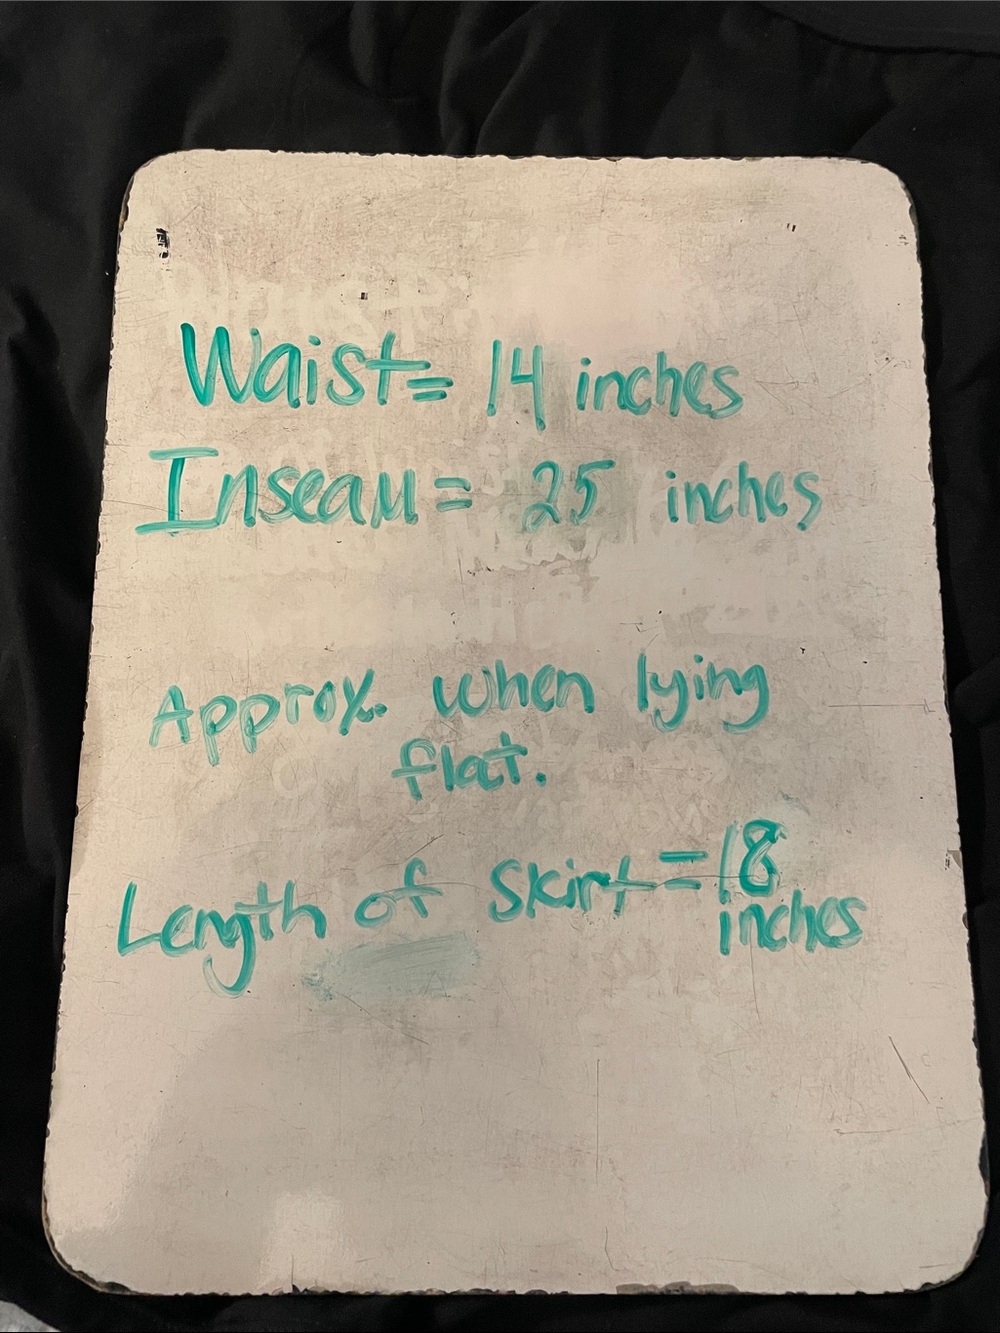 Waist= 14 inches
Inseam= 25 inches
Approx. when lying
flat.
Length of skirt=18
inches